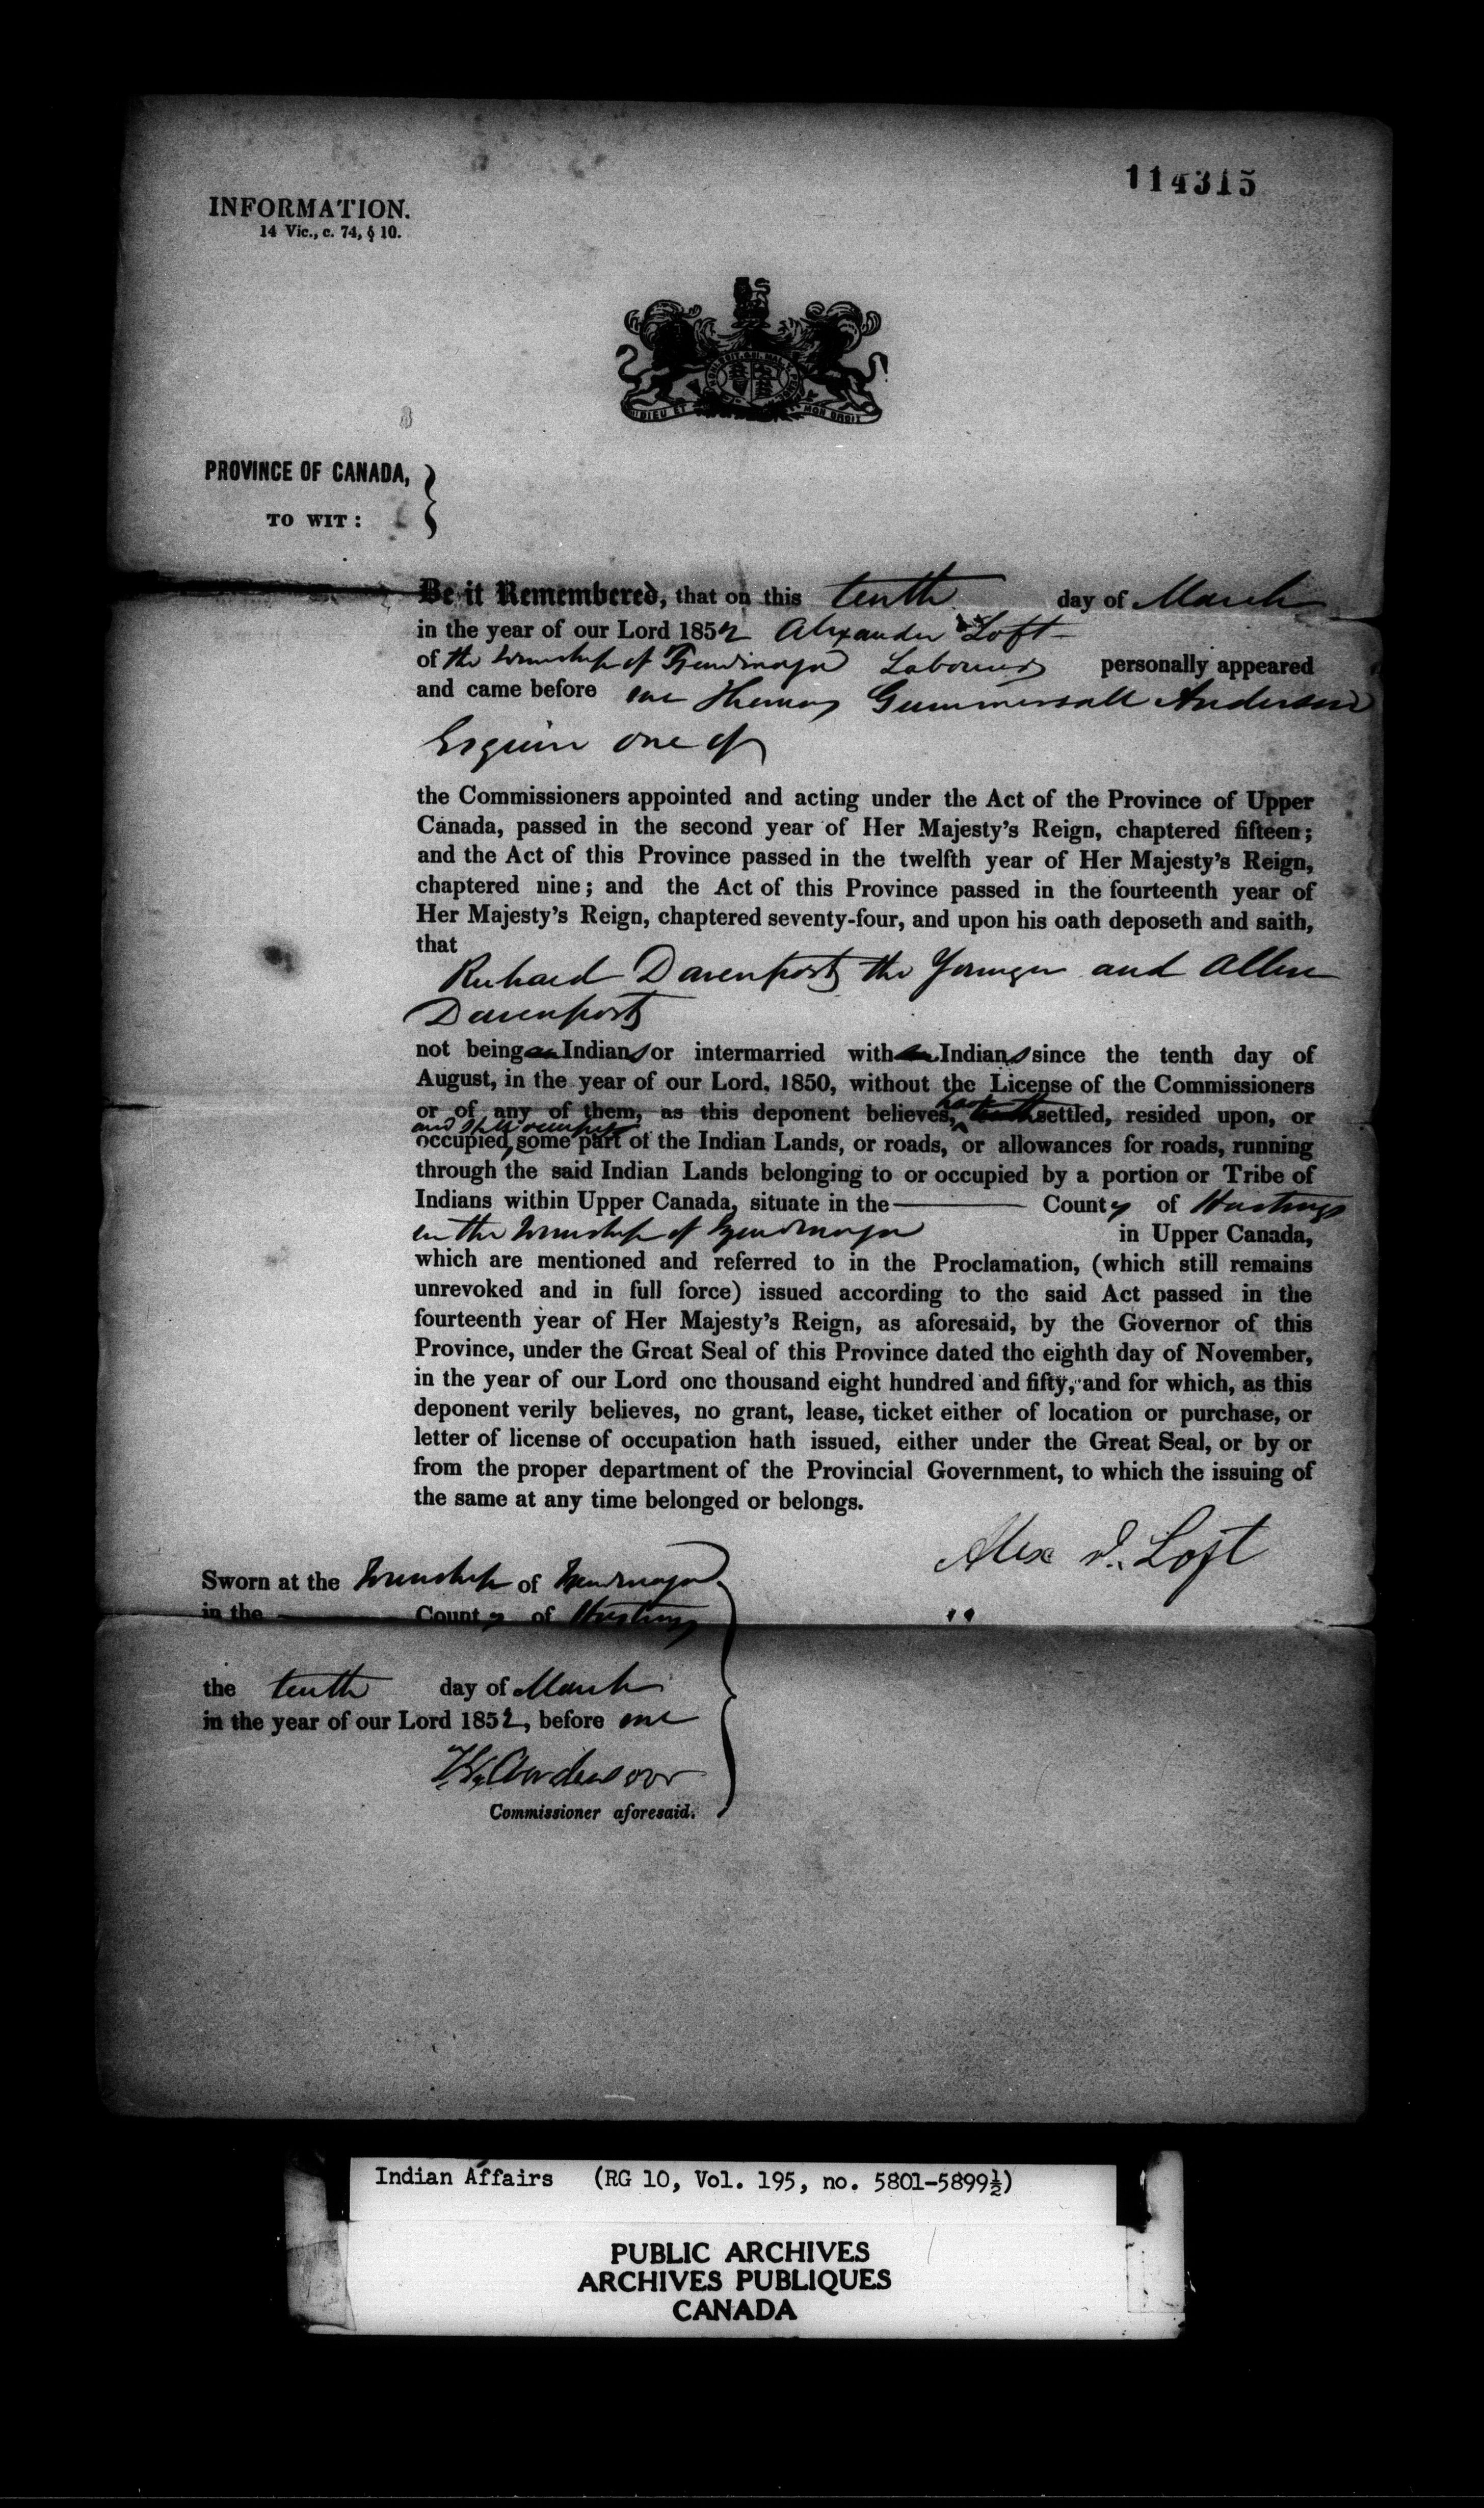 114315
INFORMATION.
14 Vic., c. 74, § 10.
DIEU ET MON DROIT
PROVINCE OF CANADA,
TO WIT:
Be it Remembered, that on this tenth day of March
in the year of our Lord 1852 Alexander Loft
of the Township of Tyendinaga Labourer personally appeared
and came before me Thomas Gummersall Anderson
Esquire one of
the Commissioners appointed and acting under the Act of the Province of Upper
Canada, passed in the second year of Her Majesty's Reign, chaptered fifteen;
and the Act of this Province passed in the twelfth year of Her Majesty's Reign,
chaptered nine; and the Act of this Province passed in the fourteenth year of
Her Majesty's Reign, chaptered seventy-four, and upon his oath deposeth and saith,
that
Richard Davenport the Younger and Allen
Davenport
not being an Indians or intermarried with an Indians since the tenth day of
August, in the year of our Lord, 1850, without the License of the Commissioners
or of any of them, as this deponent believes, have hath settled, resided upon, or
and still occupy
occupied, some part of the Indian Lands, or roads, or allowances for roads, running
through the said Indian Lands belonging to or occupied by a portion or Tribe of
Indians within Upper Canada, situate in the County of Hastings
in the Township of Tyendinaga in Upper Canada,
which are mentioned and referred to in the Proclamation, (which still remains
unrevoked and in full force) issued according to the said Act passed in the
fourteenth year of Her Majesty's Reign, as aforesaid, by the Governor of this
Province, under the Great Seal of this Province dated the eighth day of November,
in the year of our Lord one thousand eight hundred and fifty, and for which, as this
deponent verily believes, no grant, lease, ticket either of location or purchase, or
letter of license of occupation hath issued, either under the Great Seal, or by or
from the proper department of the Provincial Government, to which the issuing of
the same at any time belonged or belongs.
Alex J. Loft
Sworn at the Township of Tyendinaga
in the County of Hastings
the tenth day of March
in the year of our Lord 1852, before me
T G Anderson
Commissioner aforesaid.
Indian Affairs (RG 10, Vol. 195, no. 5801-5899½)
PUBLIC ARCHIVES
ARCHIVES PUBLIQUES
CANADA